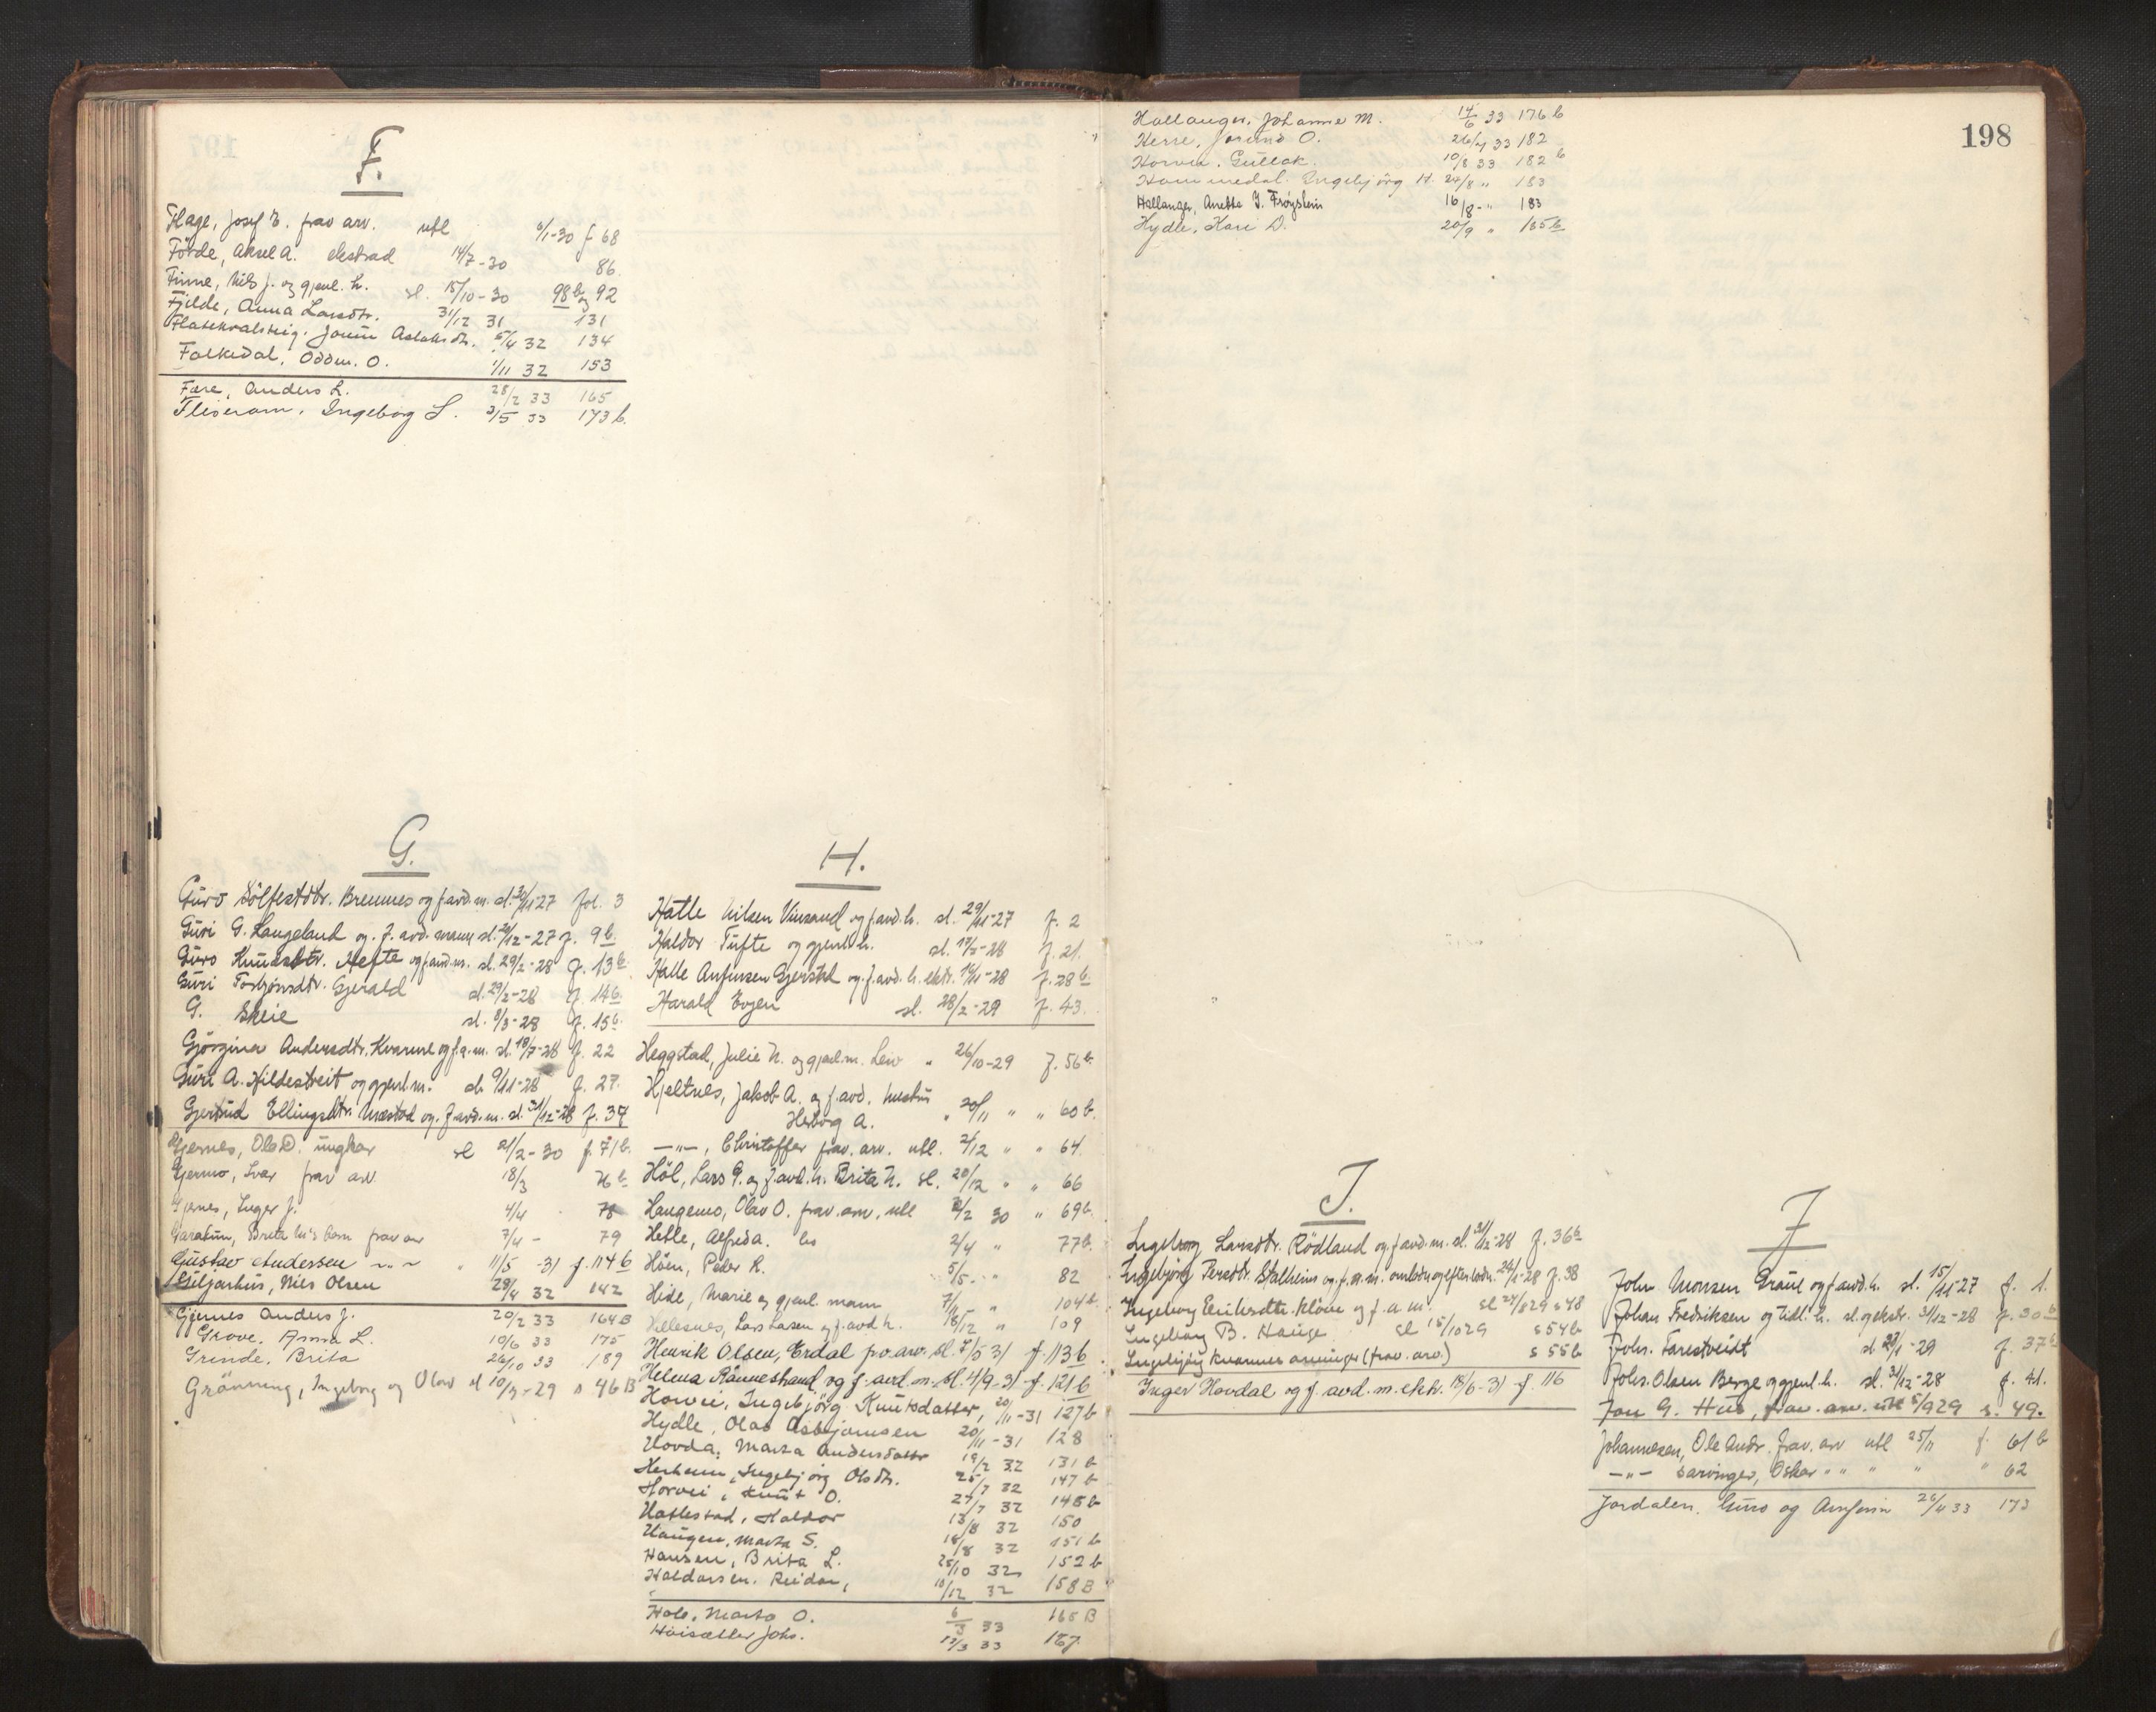 F.
Flage, Josef E. frav arv. utl 6/1-30 f 68
Förde, Aksel A. ekstrad 14/7-30 86.
Finne, Nils J. og gjenl. h. sl. 15/10-30 98b og 92
Fjelde, Anna Larsdtr. 31/12 31 131
Flatekvalsteig. Jorun Aslaksdtr. 5/4 32 134
Falkedal, Oddm. O. 1/11 32 153
Fære, Anders L. 28/2 33 165
Flisram, Ingeborg L. 3/5 33 173 b.
G.
Guro Sölfestdtr. Bremnes og f. avd. m. sl. 30/11 27 fol. 3
Guri G. Langeland og f. avd. mann sl. 12-27 f. 9b
Guro Knudsdtr. Hefte og f. avd. m. sl. 29/2-28 f. 13b
Guri Torbjørnsdtr. Gjerald sl. 29/2-28 f. 14b.
G. Skeie sl. 8/3-28 f. 15b.
Gjörgina Andersdtr. Kvarme og f. a. m. sl. 18/7-28 f. 22
Guri A. Hildestveit og gjenl. m. sl. 9/11-28 f. 27.
Gjertrud Ellingsdtr. Mæstad og f. avd. m. sl. 31/12-28 f. 37
Gjernes, Ole D. ungkar sl 21/2-30 f. 71b.
Gjermo, Ivar frav arv. 18/3 76b
Gjernes, Inger J. 4/4 78
Garatun, Brita Ns barn frav arv 7/4 - 79
Gustav Andersen -"- 11/5-31 f. 114b
Giljarhus, Nils Olsen 29/4 32 142
Gjernes Anders J. 20/2 33 164B
Grove. Anna L. 10/6 33 175
Grinde, Brita 26/10 33 189
Grönning, Ingeborg og Olav sl 10/7-29 s 46B
H.
Hatle Nilsen Vinsand og f. avd. h. sl. 29/11-27 f. 2
Haldor Tufte og gjenl. h. sl. 17/5-28 f. 21.
Halle Anfinsen Gjerstad og f. avd. h. ekstr. 14/11-28 f. 28b
Harald Evjen sl. 28/2-29 f. 43.
Heggstad, Julie N. og gjenl. m. Leiv " 26/10-29 f. 56b.
Hjeltnes, Jakob A. og f. avd. hustru
Herborg A. " 20/11 " " 60b.
-"-, Christoffer frav. arv. utl. 2/12 " " 64.
Höl, Lars P. og f. avd. h. Brita N. sl. 20/12 " " 66
Haugemo, Olav O. frav. arv. utl 3/2 30 " 69b.
Helle, Alfred A. 2/4 " 77b.
Höen, Peder K. 5/5. " 82
Hide, Marie og gjenl. mann 7/11 " 104b.
Hillesnes, Lars Larsen og f. avd. h. 18/12 " 109
Henrik Olsen, Erdal p.v. arv. sl. 7/5 31 f. 113b
Helena Rönnestrand og f. avd. m. sl. 4/9-31 f. 121b
Horvei, Ingebjörg Knutsdatter, 20/11-31 127b
Hydle, Olav Asbjörnsen 20/11-31 128
Hovda, Marta Andersdatter 19/2 32 131 b
Herheim, Ingebjörg Olsdtr. 25/7 32 147 b
Horvei, Knut O. 27/7 32 148b
Hatlestad, Haldor 13/8 32 150
Haugen, Marta S. 18/8 32 151 b
Hansen, Brita L. 25/10 32 152 b
Haldorsen. Reidar, 10/12 32 158B
Hole, Marta O. 6/3 33 165 B
Höisæter Johs. 13/3 33 167.
198
Hallanger, Johanne M. 14/6 33 176 b
Herre, Jorand O. 26/7 33 182
Horvei, Gullak. 10/8 33 182 b
Hommedal. Ingebjörg H. 24/8 " 183
Hallanger, Anetta J. Frøystein 16/8-" 183
Hydle, Kari D. 20/9 " 185b
I.
Ingeborg Larsdtr. Rödland og f. avd. m. sl. 31/12-28 f. 36b
Ingebjörg Persdtr. Stalheim og f. a. m. omlodn. og efterlodn. 24/1-28 f. 38
Ingeborg Eriksdtr. Klöve og f. a m. sl 24/8 29 s 48
Ingebörg B. Hauge sl 15/10 29 s 54b
Ingebjörg Kvarmes arvinger (frav. arv) s 55b
Inger Hovdal og f. avd. m. ekstr. 18/6-31 f. 116
J
John Monsen Graue og f. avd. h. sl. 15/11-27 f. 1.
Johan Fredriksen og tidl. h. sl. og ekstr. 31/12-28 f. 30b
Johs. Farestveidt sl 23/1-29 f. 37b
Johs. Olsen Berge og gjenl. h. sl. 31/12-28 f. 41.
Jon G. Hus, frav. arv. utl 5/9 29 s. 49.
Johannesen, Ole Andr. frav. arv utl 25/11 f. 61 b
-"- s arvinger, Oskar " " " " " 62
Jordalen. Guro og Arnfinn 26/4 33 173